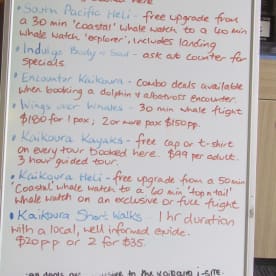 booked here
• South Pacific Heli - free upgrade from
a 30 min 'coastal' whale watch to a 40 min
whale watch 'explorer', includes landing
• Indulge Body & Soul - ask at counter for
specials
• Encounter Kaikoura - combo deals available
when booking a dolphin & albatross encounter.
• Wings over Whales - 30 min whale flight
$180 for 1 pax; 2 or more pax $150pp.
• Kaikoura Kayaks - free cap or t-shirt
on every tour booked here. $99 per adult.
3 hour guided tour.
• Kaikoura Heli - free upgrade from a 50 min
'Coastal' whale watch to a 60 min 'top n tail'
whale watch on an exclusive or full flight
• Kaikoura Short Walks - 1 hr duration
with a local, well informed guide.
$20pp or 2 for $35.
deals are to the Kaikoura i-SITE.